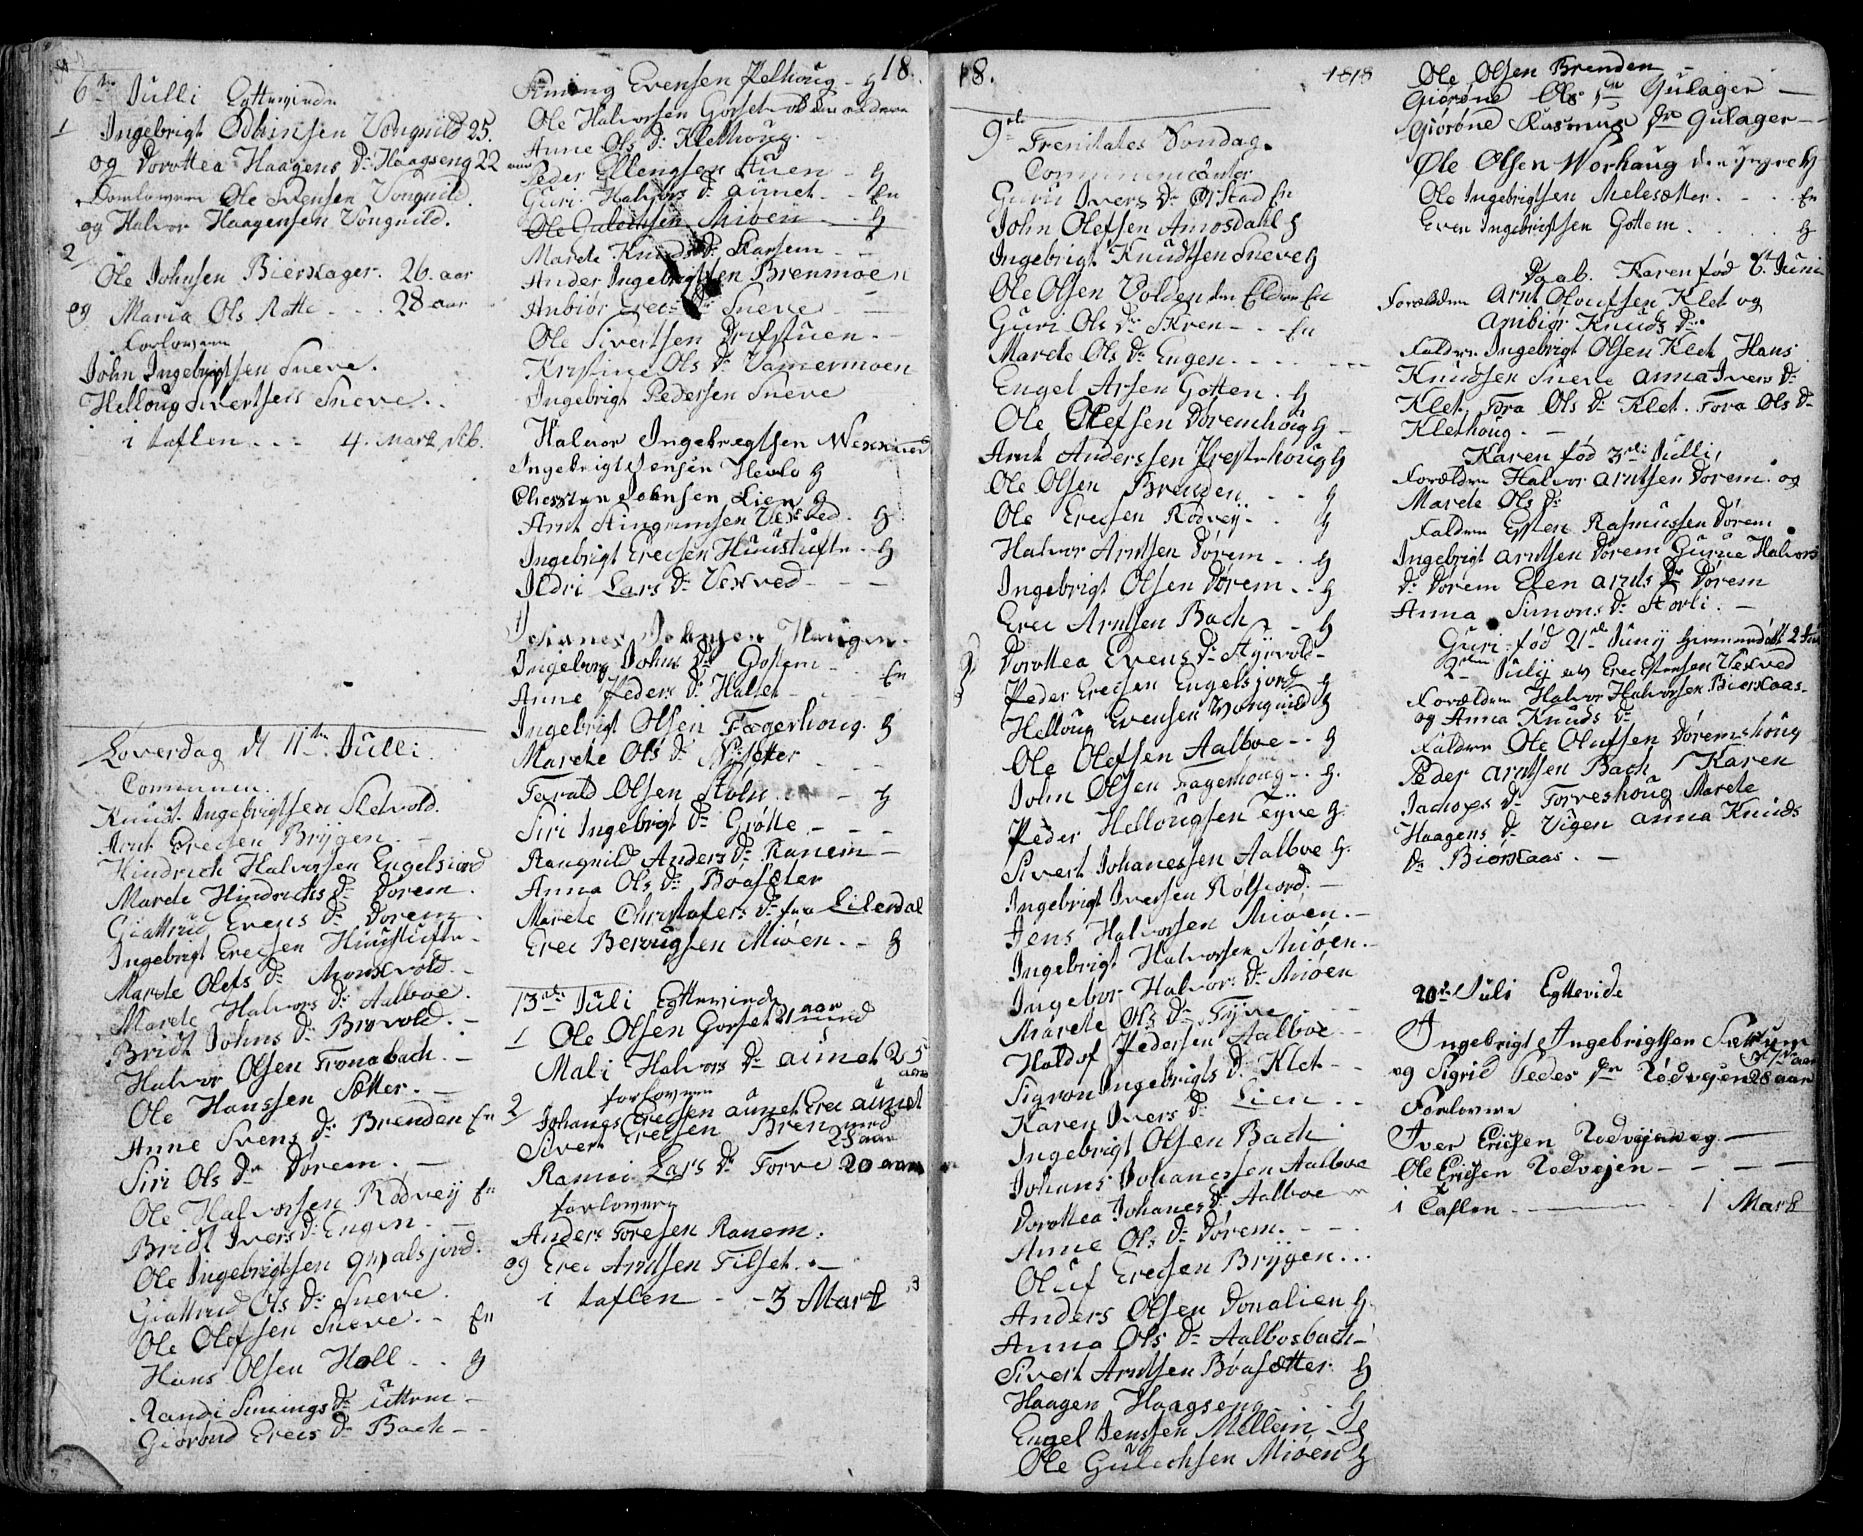 6te Julli Egtevinde
1 Ingebrigt Odinsen Vongnild 25.
og Dorottea Haagens D: Haagseng 22 aar
Forlovere Ole Svensen Vongnild.
og Halvor Haagensen Vongnild.
2
Ole Johnsen Bierskager. 26. aar
og Maria Ols Ratte . . . 28 aar
forlovere
John Ingebrigtsen Sneve.
Helloug Sivertsen Sneve . .
i taflen . . - 4. Mark
Loverdag d 11te Julli
Communion.
Knud Ingebrigtsen Sletvold.
Arnt Erecsen Brygen. -
Hindrich Halvorsen Engelsiord
Marete Hindrichs D: Dorem.
Giattrud Evens D: Dorem.
Ingebrigt Erecsen Huustufte -
Marete Olefs D:
Marete Halvors D: Aalboe.
Bridt Johns D: Brøvold. -
Halvor Olsen Tronabach. -
Ole Hanssen Sætter. -
Anne Svens D: Brenden En
Siri Ols D: Dørem. -
Ole Halvorsen Rodveij En
Bridt Ivers D: Engen. -
Ole Ingebrigtsen
Giattrud Ols D: Sneve.
Ole Olefsen Sneve. - En
Hans Olsen Holl . . g
Randi Simings D: Uttem -
Giørond Erecs D: Bach -
18.
Aming Evensen Pelhoug - g
Ole Halvorsen Gorset
Anne Ols D: Klethoug. -
Peder Ellengsen Stuen - g
Guri Halvors D: Aunet - En
Ole Gulechsen Miøen - g
Marete Knuds D: Skarsem -
Ander Ingebrigtsen Brenmoen
Anbiør Erecs D: Sneve -
Ole Sivertsen Drifstuen. -
Kristine Ols D: Vamermoen
Ingebrigt Pedersen Sneve
Halvor Ingebregtsen
Ingebrigt Jensen Hevlo g
Johnsen Lien g
Arnt Vexved. g
Ingebrigt Erecsen Huustufte. g
Ildri Lars D: Vexved - -
Johannes Johnsen Haugen.
Ingeborg Johns D: Gottem -
Anne Peders D: Halset - . En
Ingebrigt Olsen Fagerhoug. g
Marete Ols D: Nisetter - -
Farald Olsen Støln - g
Siri Ingebrigt D: Grøtte - - -
Rangnild Anders D: Ranem -
Anna Ols D: Boasæter
Marete Christofers D: fra Lilerdal
Erec Berougsen Miøen. - g
13de Juli Egttevinde
1 Ole Olsen Gorset 21 aar med
Mali Halvors D: Aunet 25 aar
forlovere
Johanes Erecsen Aunet Erec Aunet
2 Sivert Erecsen Bren med 28 aar
Ranni Lars D: Torve 20 aar
forlovere
Anders Toresen Ranem.
og Erec Arntsen Filset. -
i taflen - - 3 Mark
18. 1818
9de Trenitates Søndag.
Communicanter
Guru Ivers D: Ølstad En
John Olefsen Amosdahl g
Ingebrigt Knudtsen Sneve g
Ole Olsen Volden den Eldre En
Guri Ols D: Skren - - En
Marete Ols D: Engen . . . . .
Engel Arsen Gotten . g
Ole Olefsen Doremhoug g -
Arnt Anderssen Presthoug g
Ole Olsen Brenden . . g
Ole Erecsen Rodveij - g
Halvor Arntsen Dørem . . g
Ingebrigt Olsen Dørem . . g
Erec Arntsen Bach - - g
Dorottea Evens D: Styrvold -
Peder Erecsen Engelsjord g
Helloug Evensen Vongnild g
Ole Olefsen Aalboe - . g
John Olsen Fagerhoug - . g.
Peder Hellougsen Tyve g.
Sivert Johanessen Aalboe g.
Ingebrigt Iversen Rølsiord. -
Jens Halvorsen Miøen. -
Ingebrigt Halvorsen Miøen. -
Ingebor Halvors D: Miøen
Marete Ols D: Tyve. - -
Haldof Pedersen Aalboe - -
Sigron Ingebrigts D: Klet - -
Karen Ivers D: Lien . .
Ingebrigt Olsen Bach
Johans Johanessen Aalboe
Dorottea Johanes D: Aalboe -
Anne Ols D: Dørem. - -
Oluf Erecsen Brygen . . .
Anders Olsen Donalien g.
Anna Ols D: Aalbosbach -
Sivert Arntsen Bøasætter g
Haagen Haagseng . . . g
Engel Jenssen Mellem - g
Ole Gulechsen Miøen g
Ole Olsen Brenden -
Giørøne Ols D: Gulager -
Giorøne Rasmus D: Gulager -
Ole Olsen Worhaug den yngre g
Ole Ingebrigtsen Melesætter . . En
Even Ingebrigtsen Gottem . . . g
Daab. Karen fød 6t Juni
Forældre Arnt Oloufsen Klet og
Anbiør Knuds D:
Faddere Ingebrigt Olsen Klet Hans
Knudsen Sneve Anna Ivers D:
Klet Tora Ols D: Klet. Tora Ols D:
Klethoug. -
Karen fød 3de Julli,
Forældre Halvor Arntsen Dorem og
Marete Ols D:
Faddere Esten Rasmussen Dørem
Ingebrigt Arntsen Dørem Gurue Halvors
D: Dørem Elen Arnts D: Dørem
Anna Simons D: Storli. -
Guri fød 21de Junij hiemmedøbt
2den Julij av Erec Estensen Vexved
Forældre Halvor Halvorsen Bierkaas -
og Anna Knuds D:
Faddere Ole Olufsen Døremshoug
Peder Arntsen Bach Karen
Jachops D: Torveshoug Marete
Haagens D: Vigen Anna Knuds
D: Biørkaas. -
20de Juli Egttevide
Ingebrigt Ingebrigtsen Sættrum
og Sigrid Peders D: Rødvejen 28 aar
Forlovere
Iver Ericsen Rødvejen og. -
Ole Ericsen Rodvejen - - - -
i Taflen - - 1 Mark